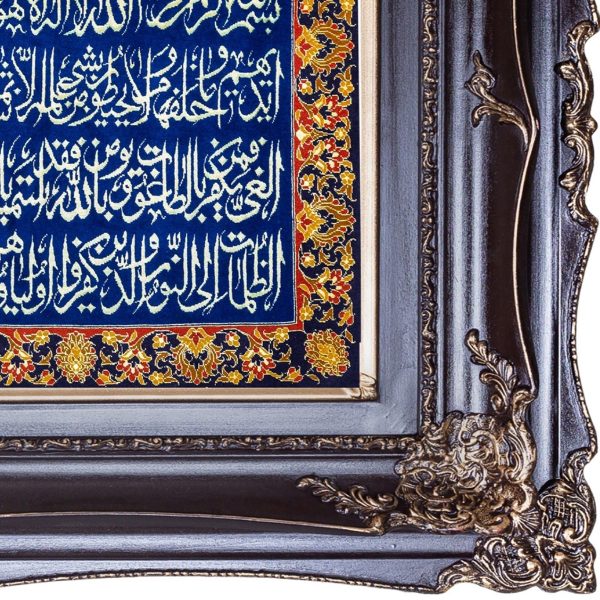 الله لا اله
ايديهم وما خلفهم ولا يحيطون بشيء من علمه الا
الغي فمن يكفر بالطاغوت ويؤمن بالله فقد
الظلمات الى النور والذين كفروا اولياؤهم